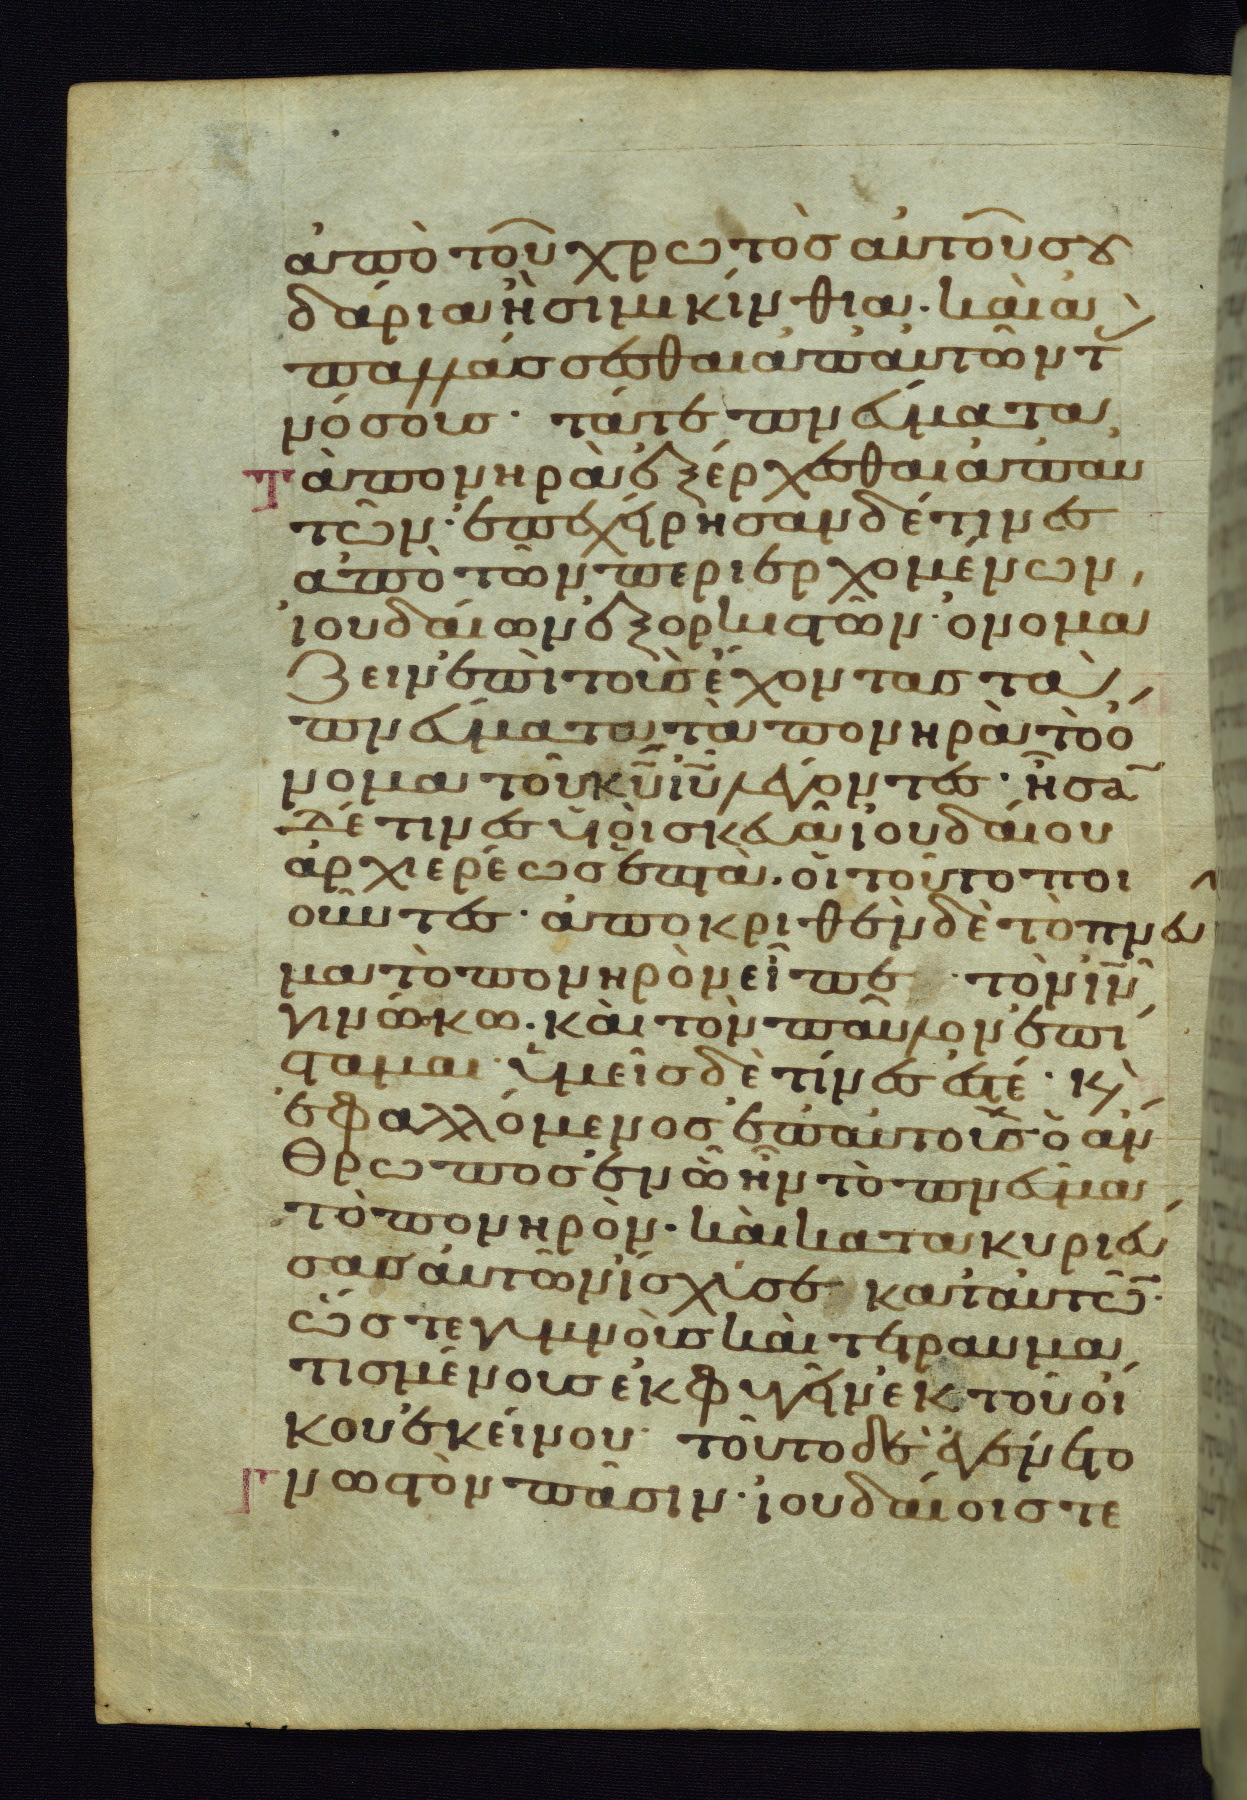 ἀπὸ τοῦ χρωτὸσ αὐτοῦ σȣ
δάρια ἢ σιμικίνθια· καὶ ἀ
παλλάσσεσθαι ἀπ' αὐτῶν τ
νόσοισ· τάτε πνεύματα
τὰ πονηρὰ ἐξέρχεσθαι ἀπ αυ
τῶν· ἐπεχείρησαν δέ τινεσ
ἀπὸ τῶν περιερχομένων
ἰουδαίων ἐξορκιστῶν· ὀνομα
ζειν ἐπὶ τοὺσ ἔχοντασ τὰ
πνεύματα τὰ πονηρὰ τὸ ὄ
νομα τοῦ κῦ ἰῦ λέγοντεσ· ἦσᾱ
δέ τινεσ υἱοὶ σκευᾶ ἰουδαίου
ἀρχιερέωσ ἑπτὰ· οἱ τοῦτο ποι
οῦντεσ· ἀποκριθὲν δὲ τὸ πνεῦ
μα τὸ πονηρὸν εἶπε· τὸν ἰν
γινώσκω· καὶ τὸν παῦλον ἐπί
σταμαι· ὑμεῖσ δὲ τίνεσ ἐστέ· κ
ἐφαλλόμενοσ ἐπ' αὐτοὺσ ὁ ἄν
θρωποσ ἐν ὧ ἦν τὸ πνεῦμα
τὸ πονηρὸν· καὶ κατακυριεύ
σασ αὐτῶν ἴσχυσε κατ' αὐτῶ̄·
ὥστε γυμνοὺσ καὶ τετραυμα
τισμένουσ ἐκφυγεῖν ἐκ τοῦ οἴ
κου ἐκείνου· τοῦτο δὲ ἐγένετο
γνωστὸν πᾶσιν· ἰουδαίοισ τε